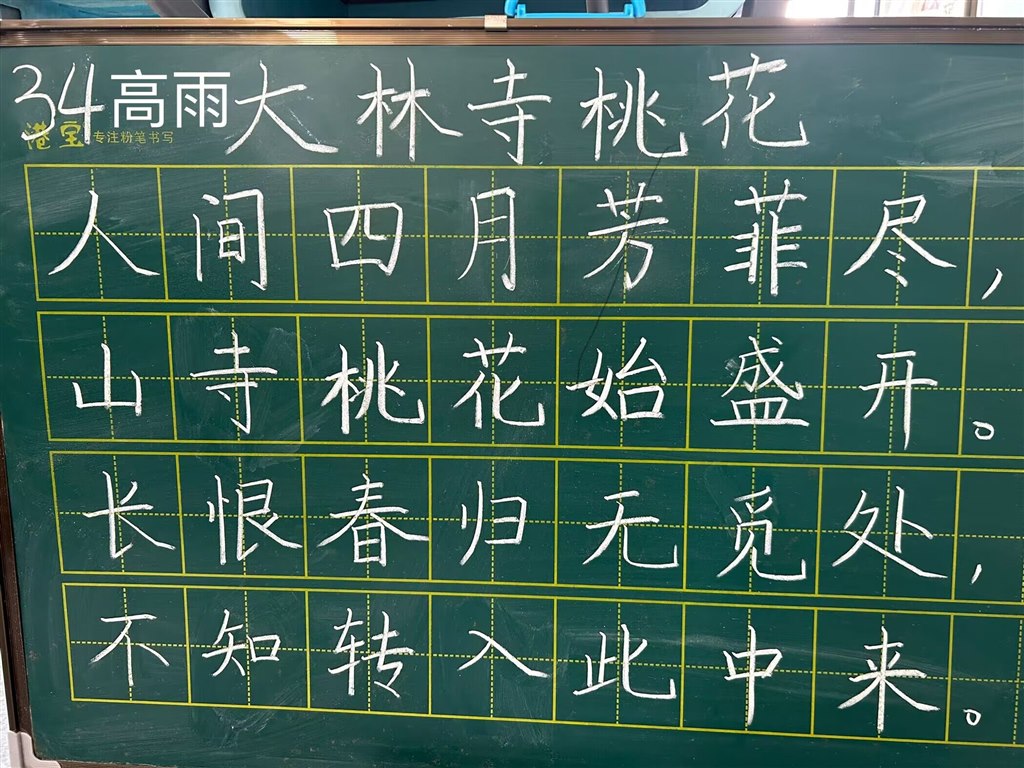 34高雨大林寺桃花
港宝 专注粉笔书写
人间四月芳菲尽,
山寺桃花始盛开。
长恨春归无觅处,
不知转入此中来。